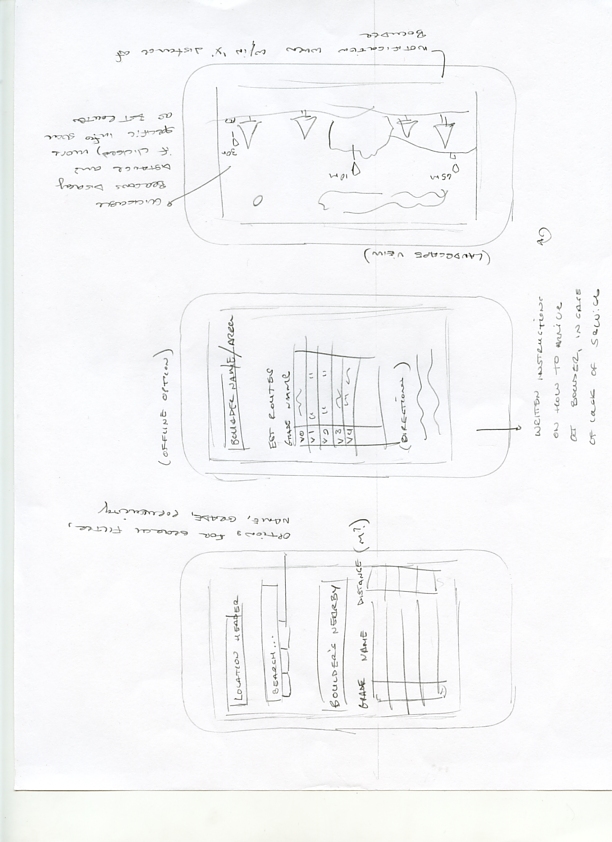 OPTIONS FOR SEARCH FILTER,
NAME, GRADE, PROXIMITY
LOCATION HEADER
SEARCH...
BOULDER'S NEARBY
GRADE NAME DISTANCE (M?)
(OFFLINE OPTION)
BOULDER NAME/AREA
EST ROUTES
GRADE NAME
V0
V1 "
V2 " "
V3
V4
(DIRECTIONS)
WRITTEN INSTRUCTIONS
ON HOW TO ARRIVE
AT BOULDER, IN CASE
OF LACK OF SERVICE
NOTIFICATION WHEN W/IN 'X' DISTANCE OF
BOULDER
CLICKABLE
BEACONS DISPLAY
DISTANCE AND
IF CLICKED, MORE
SPECIFIC INFO SUCH
AS EST ROUTES
10M
65M
(LANDSCAPE VIEW)